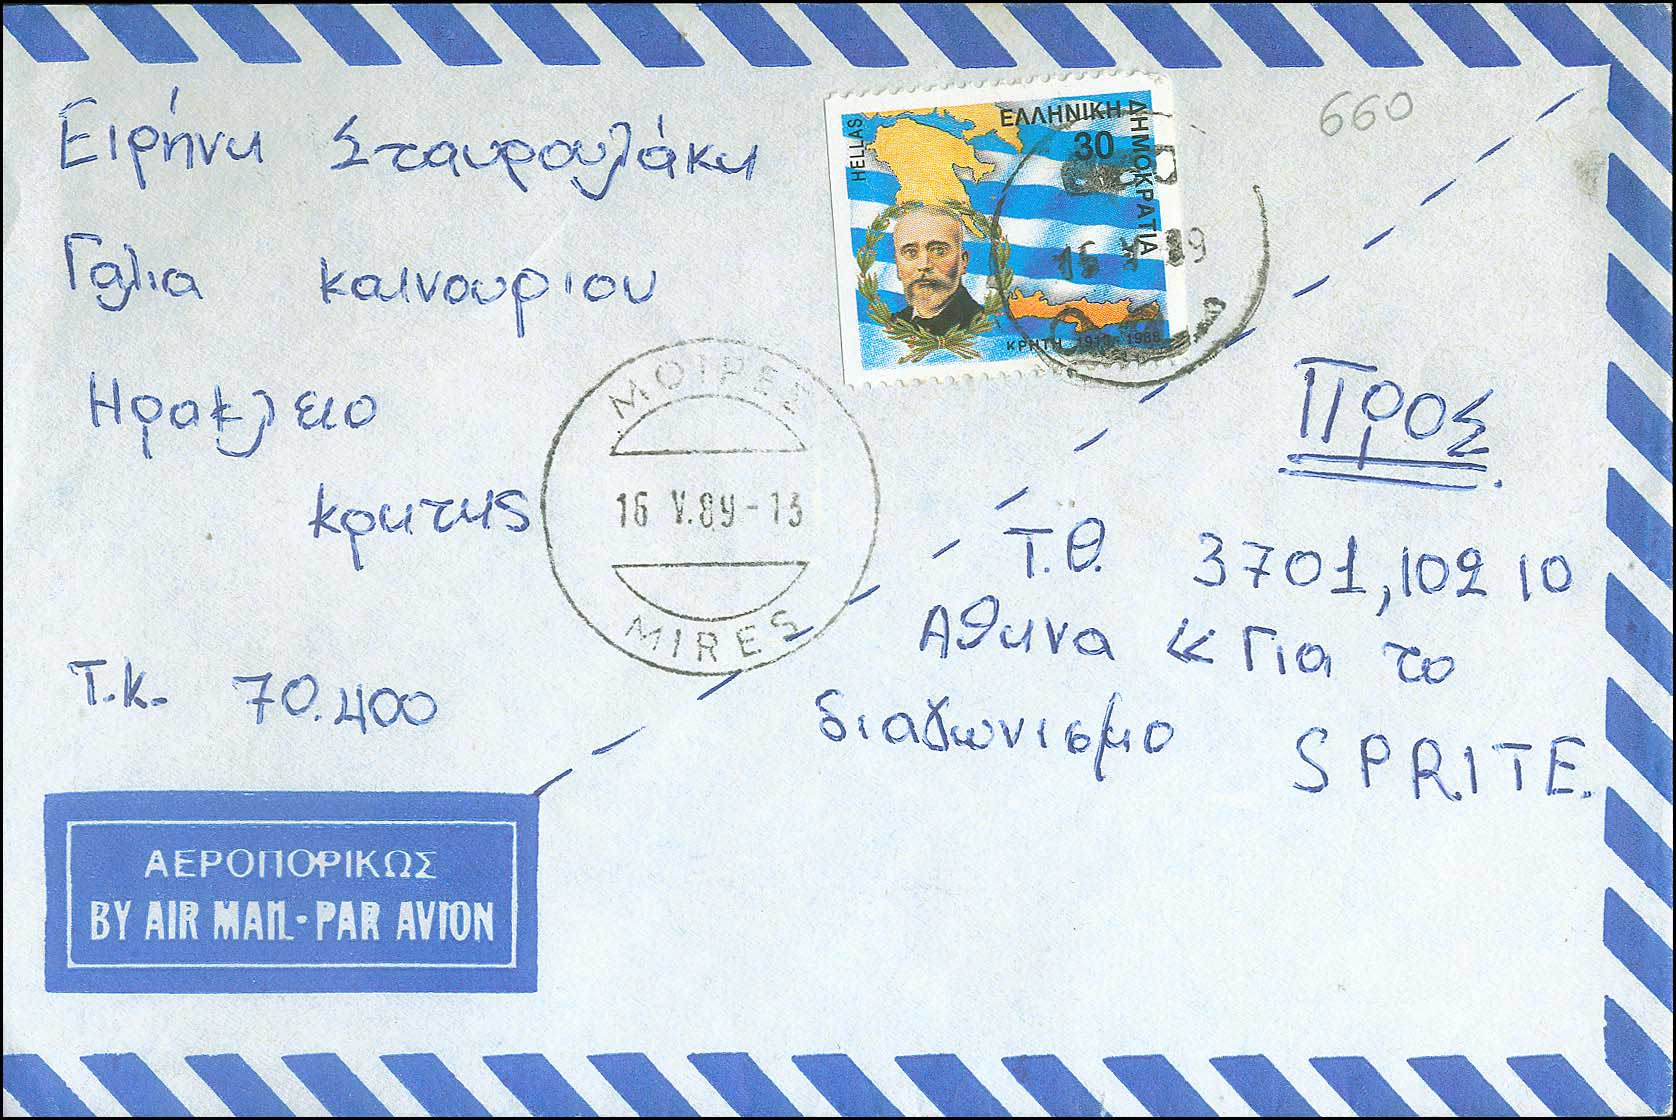 Ειρήνη Σταυρουλάκη
Γαλια καινουριου
Ηρακλειο
κρητης
Τ.Κ. 70.400
660
HELLAS
ΕΛΛΗΝΙΚΗ ΔΗΜΟΚΡΑΤΙΑ
30
ΚΡΗΤΗ 1913-1988
ΜΟΙΡΕΣ
16 V.89-13
MIRES
Προς.
Τ.Θ. 3701, 102 10
Αθηνα «Για το
διαγωνισμο SPRITE.
ΑΕΡΟΠΟΡΙΚΩΣ
BY AIR MAIL-PAR AVION